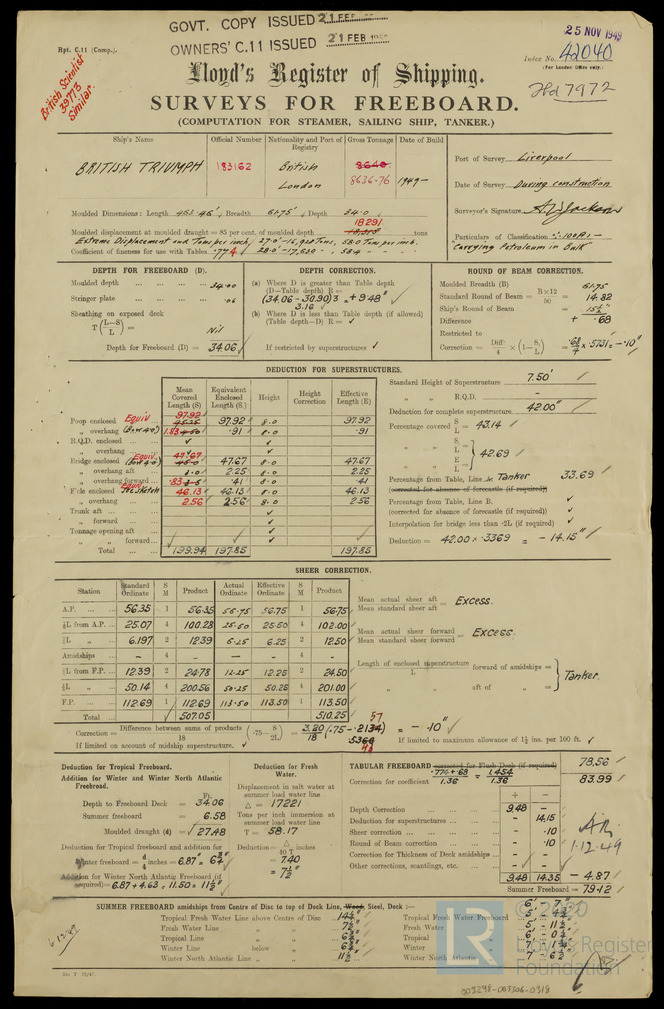 GOVT. COPY ISSUED 21 FEB
OWNERS' C.11 ISSUED 21 FEB
25 NOV 1949
Rpt. C.11 (Comp.).
Index No. 42040
(For London Office only.)
British Scientist
39773
Similar.
Lloyd's Register of Shipping.
Fbd 7972
SURVEYS FOR FREEBOARD.
(COMPUTATION FOR STEAMER, SAILING SHIP, TANKER.)
Ship's Name Official Number Nationality and Port of Registry Gross Tonnage Date of Build
BRITISH TRIUMPH 183162 British London 8640 8636.76 1949
Port of Survey Liverpool
Date of Survey During construction
Surveyor's Signature
Particulars of Classification 100A1
"Carrying Petroleum in Bulk"
Moulded Dimensions: Length 463.46' Breadth 61.75' Depth 34.0
18291
Moulded displacement at moulded draught = 85 per cent. of moulded depth tons
Extreme Displacement and Tons per inch, 27.0'-16,920 Tons, 58.0 Tons per inch.
Coefficient of fineness for use with Tables .774 28.0'-17,630 58.4
DEPTH FOR FREEBOARD (D).
Moulded depth 34.00
Stringer plate .06
Sheathing on exposed deck
T (L-S / L) = Nil
Depth for Freeboard (D) = 34.06
DEPTH CORRECTION.
(a) Where D is greater than Table depth
(D-Table depth) R =
(34.06-30.90)3 = +9.48"
3.16
(b) Where D is less than Table depth (if allowed)
(Table depth-D) R =
If restricted by superstructures
ROUND OF BEAM CORRECTION.
Moulded Breadth (B) 61.75
Standard Round of Beam = B×12 / 50 = 14.82
Ship's Round of Beam = 15½"
Difference + .68
Restricted to
Correction = Diff / 4 × (1-S/L) = .68/4 × .5731 = -.10"
DEDUCTION FOR SUPERSTRUCTURES.
Mean Covered Length (S) Equivalent Enclosed Length (S₁) Height Height Correction Effective Length (E)
Poop enclosed Equiv 97.92 97.92 8.0 97.92
" overhang 1.83 .91 8.0 .91
R.Q.D. enclosed
" overhang
Bridge enclosed Equiv. 47.67 47.67 8.0 47.67
" overhang aft 3.0 2.25 8.0 2.25
" overhang forward .83 .41 8.0 .41
F'cle enclosed 46.13 46.13 8.0 46.13
" overhang 2.56 2.56 8.0 2.56
Trunk aft
" forward
Tonnage opening aft
" " forward
Total 199.94 197.85 197.85
Standard Height of Superstructure 7.50'
" " R.Q.D. -
Deduction for complete superstructure 42.00"
Percentage covered S/L = 43.14
S₁/L = E/L = 42.69
Percentage from Table, Line Tanker 33.69
(corrected for absence of forecastle (if required))
Percentage from Table, Line B.
(corrected for absence of forecastle (if required))
Interpolation for bridge less than ·2L (if required)
Deduction = 42.00 × .3369 = -14.15"
SHEER CORRECTION.
Station Standard Ordinate S M Product Actual Ordinate Effective Ordinate S M Product
A.P. 56.35 1 56.35 56.75 56.75 1 56.75
⅙L from A.P. 25.07 4 100.28 25.50 25.50 4 102.00
⅓L " 6.197 2 12.39 6.25 6.25 2 12.50
Amidships - 4 - - - 4 -
⅓L from F.P. 12.39 2 24.78 12.25 12.25 2 24.50
⅙L " 50.14 4 200.56 50.25 50.25 4 201.00
F.P. 112.69 1 112.69 113.50 113.50 1 113.50
Total 507.05 510.25
Mean actual sheer aft / Mean standard sheer aft = Excess.
Mean actual sheer forward / Mean standard sheer forward = Excess.
Length of enclosed superstructure / L forward of amidships =
" " aft of " = Tanker
Correction = Difference between sums of products / 18 (.75 - S/2L) = 3.20/18 (.75-.2157) = -.10"
If limited on account of midship superstructure.
If limited to maximum allowance of 1½ ins. per 100 ft.
Deduction for Tropical Freeboard.
Addition for Winter and Winter North Atlantic Freeboard.
Ft.
Depth to Freeboard Deck = 34.06
Summer freeboard = 6.58
Moulded draught (d) = 27.48
Deduction for Tropical freeboard and addition for Winter freeboard = d/4 inches = 6.87" = 6¾"
Addition for Winter North Atlantic Freeboard (if required) = 6.87+4.63 = 11.50 = 11½"
Deduction for Fresh Water.
Displacement in salt water at summer load water line
Δ = 17221
Tons per inch immersion at summer load water line
T = 58.17
Deduction = Δ / 40 T inches
= 7.40
= 7½"
TABULAR FREEBOARD corrected for Flush Deck (if required) 78.56
Correction for coefficient .774+.68 / 1.36 = 1.454 / 1.36 83.99
+ -
Depth Correction 9.48 -
Deduction for superstructures - 14.15
Sheer correction - .10
Round of Beam correction - .10
Correction for Thickness of Deck amidships
Other corrections, scantlings, etc.
9.48 14.35 - 4.87
Summer Freeboard = 79.12
1.12.49
SUMMER FREEBOARD amidships from Centre of Disc to top of Deck Line, Wood, Steel, Deck :- 6' 7"
Tropical Fresh Water Line above Centre of Disc 14¼" Tropical Fresh Water Freeboard 5' 4¾"
Fresh Water Line " " 7½" Fresh Water " 5' 11½"
Tropical Line " " 6¾" Tropical " 6' 0¼"
Winter Line below " 6¾" Winter " 7' 1¾"
Winter North Atlantic Line " " 11½" Winter North Atlantic " 7' 6½"
6.12.49
© 2020
LR
Lloyd's Register
Foundation
003298-003306-0318